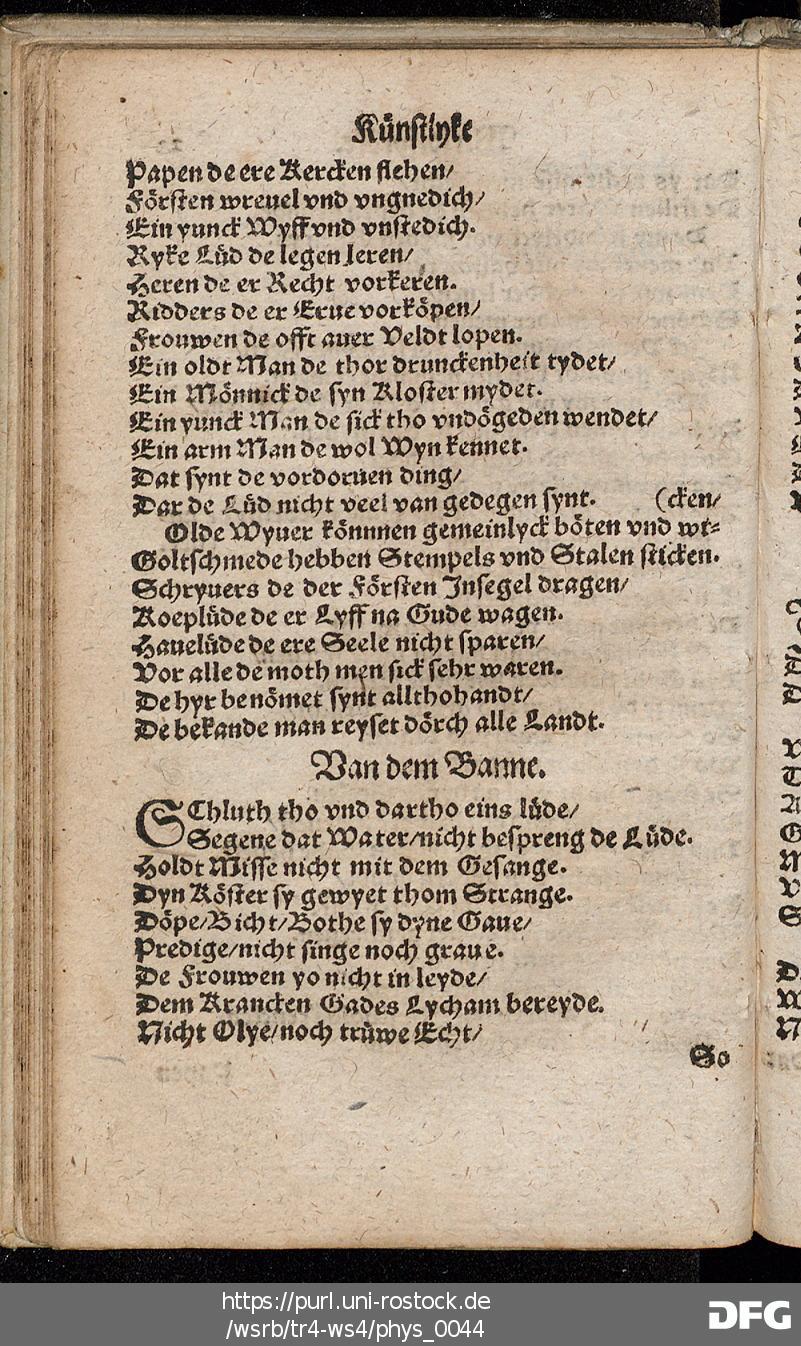 Künstlyke
Papen de ere Kercken flehen/
Försten wreuel vnd vngnedich/
Ein yunck Wyff vnd vnstedich.
Ryke Lüd de legen leren/
Heren de er Recht vorkeren.
Ridders de er Erue vorköpen/
Frouwen de offt auer Veldt lopen.
Ein oldt Man de thor drunckenheit tydet/
Ein Mönnick de syn Kloster mydet.
Ein yunck Man de sick tho vndögeden wendet/
Ein arm Man de wol Wyn kennet.
Dat synt de vordoruen ding/
Dar de Lüd nicht veel van gedegen synt. (cken/
Olde Wyuer könnnen gemeinlyck böten vnd wi-
Goltschmede hebben Stempels vnd Stalen sticken.
Schryuers de der Försten Insegel dragen/
Koeplüde de er Lyff na Gude wagen.
Hauelüde de ere Seele nicht sparen/
Vor alle de moth men sick sehr waren.
De hyr benömet synt allthohandt/
De bekande man reyset dörch alle Landt.
Van dem Banne.
SChluth tho vnd dartho eins lüde/
Segene dat Water/nicht bespreng de Lüde.
Holdt Misse nicht mit dem Gesange.
Dyn Köster sy gewyet thom Strange.
Döpe/Bicht/Bothe sy dyne Gaue/
Predige/nicht singe noch graue.
De Frouwen yo nicht in leyde/
Dem Krancken Gades Lycham bereyde.
Nicht Olye/noch trüwe Echt/
So
https://purl.uni-rostock.de
/wsrb/tr4-ws4/phys_0044
DFG